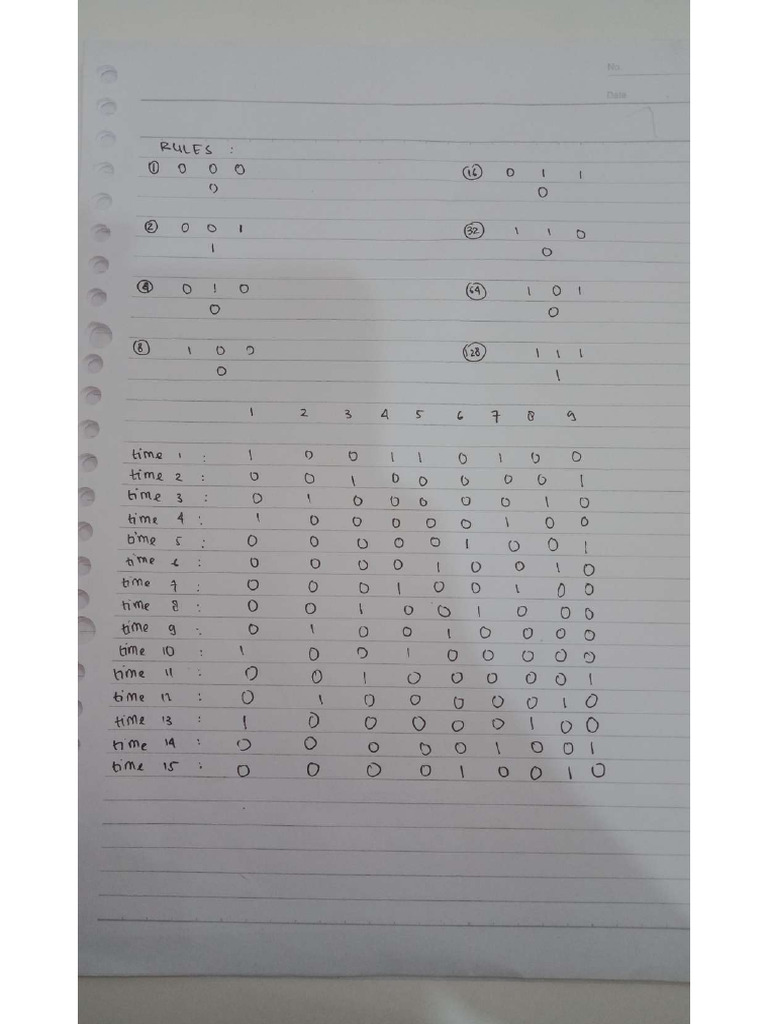 No.
Date
RULES :
① 0 0 0
0
② 0 0 1
1
④ 0 1 0
0
⑧ 1 0 0
0
⑯ 0 1 1
0
㉜ 1 1 0
0
(64) 1 0 1
0
(128) 1 1 1
1
1 2 3 4 5 6 7 8 9
time 1 : 1 0 0 1 1 0 1 0 0
time 2 : 0 0 1 0 0 0 0 0 1
time 3 : 0 1 0 0 0 0 0 1 0
time 4 : 1 0 0 0 0 0 1 0 0
time 5 : 0 0 0 0 0 1 0 0 1
time 6 : 0 0 0 0 1 0 0 1 0
time 7 : 0 0 0 1 0 0 1 0 0
time 8 : 0 0 1 0 0 1 0 0 0
time 9 : 0 1 0 0 1 0 0 0 0
time 10 : 1 0 0 1 0 0 0 0 0
time 11 : 0 0 1 0 0 0 0 0 1
time 12 : 0 1 0 0 0 0 0 1 0
time 13 : 1 0 0 0 0 0 1 0 0
time 14 : 0 0 0 0 0 1 0 0 1
time 15 : 0 0 0 0 1 0 0 1 0